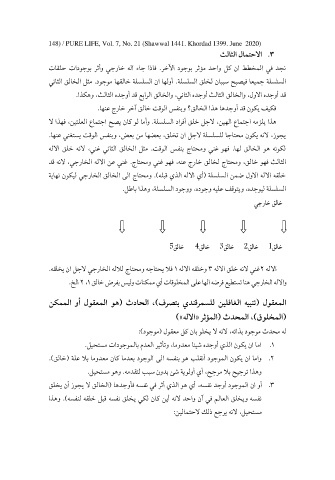 148) / PURE LIFE, Vol. 7, No. 21 (Shawwal 1441. Khordad 1399. June 2020)
٣. الاحتمال الثالث
نجد في المخطط ان كل واحد مؤثر بوجود الآخر. فاذا جاء اله خارجي وأثر بوجودات حلقات
السلسلة جميعا فيصبح سببان لخلق السلسلة. أولها ان السلسلة خالقها موجود. مثل الخالق الثاني
قد أوجده الاول، والخالق الثالث أوجده الثاني، والخالق الرابع قد أوجده الثالث، وهكذا.
فكيف يكون قد أوجدها هذا الخالق؟ وبنفس الوقت خالق آخر خارج عنها.
هذا يلزمه اجتماع الهين، لاجل خلق أفراد السلسلة. وأما لو كان يصح اجتماع العلتين، فهذا لا
يجوز، لانه يكون محتاجا للسلسلة لاجل ان تخلق، بعضها من بعض، وبنفس الوقت يستغني عنها.
لكونه هو الخالق لها. فهو غني ومحتاج بنفس الوقت. مثل الخالق الثاني غني، لانه خلق الاله
الثالث فهو خالق، ومحتاج لخالق خارج عنه، فهو غني ومحتاج. غني عن الاله الخارجي، لانه قد
خلقه الاله الاول ضمن السلسلة (أي الاله الذي قبله). ومحتاج الى الخالق الخارجي ليكون نهاية
السلسلة ليوجده، ويتوقف عليه وجوده، ووجود السلسلة. وهذا باطل.
خالق خارجي
خالق1 خالق2 خالق3 خالق4 خالق5
الاله ٢غني لانه خلق الاله ٣ وخلقه الاله ١ فلا يحتاجه ومحتاج للاله الخارجي لاجل ان يخلقه.
والاله الخارجي هنا تستطيع فرضه الها على المخلوقات أي ممكنات وليس بفرض خالق ١، ٢ الخ.
المعقول (تنبيه الغافلين للسمرقندي بتصرف)، الحادث (هو المعقول أو الممكن
(المخلوق)، المحدث (المؤثر «الاله»)
له محدث موجود بذاته، لانه لا يخلو بان كل معقول (موجود):
١. اما ان يكون الذي أوجده شيئا معدوما، وتأثير العدم بالموجودات مستحيل.
٢. واما ان يكون الموجود أنقلب هو بنفسه الى الوجود بعدما كان معدوما بلا علة (خالق).
وهذا ترجيح بلا مرجح، أي أولوية شئ بدون سبب لتقدمه. وهو مستحيل.
٣. أو ان الموجود أوجد نفسه، أي هو الذي أثر في نفسه فأوجدها (الخالق لا يجوز أن يخلق
نفسه ويخلق العالم في آن واحد لانه أين كان لكي يخلق نفسه قبل خلقه لنفسه). وهذا
مستحيل، لانه يرجع ذلك لاحتمالين: